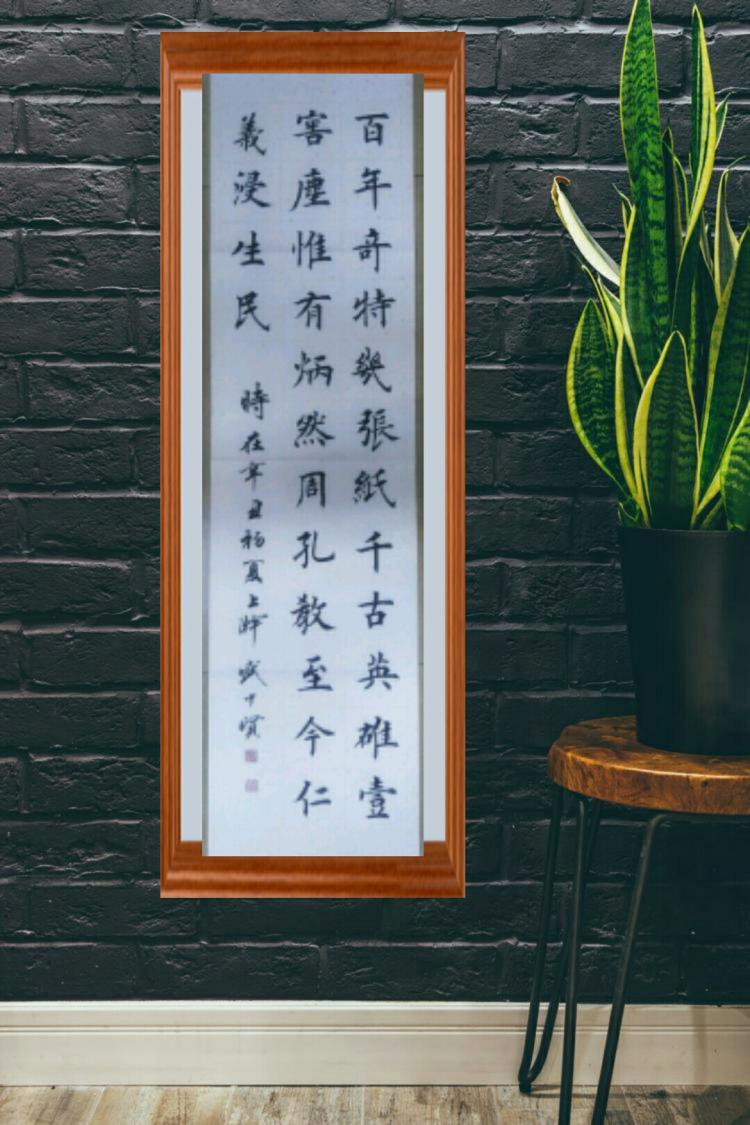 百年奇特幾張紙千古英雄壹
窖塵惟有炳然周孔教至今仁
義浸生民
時在辛丑初夏上澣